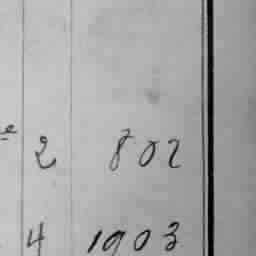 e 2 802
4 1903